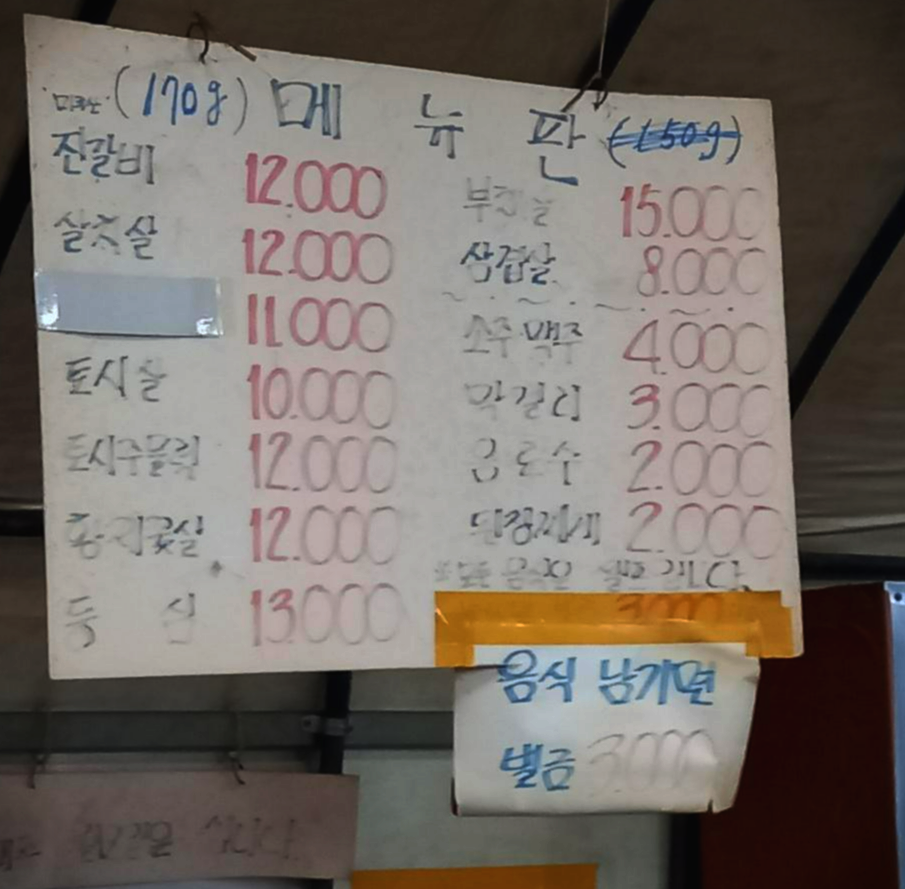 (170g) 메 뉴 판 (150g)
진갈비 12.000
살치살 12.000
11.000
토시살 10.000
토시주물럭 12.000
황제꽃살 12.000
등 심 13.000
부채살 15.000
삼겹살 8.000
소주·맥주 4.000
막걸리 3.000
음료수 2.000
된장찌개 2.000
3000
음식 남기면
벌금 3000